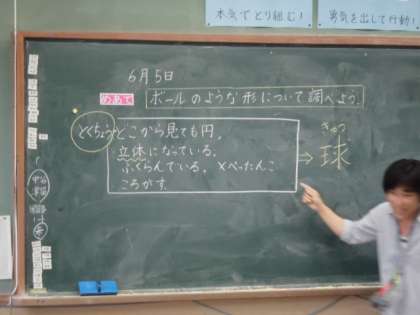 本気でとり組む!
勇気を出して行動!
6月5日
めあて
ボールのような形について調べよう.
とくちょう
どこから見ても円.
立体になっている.
ふくらんでいる. ×ぺったんこ
ころがす.
⇒
きゅう
球